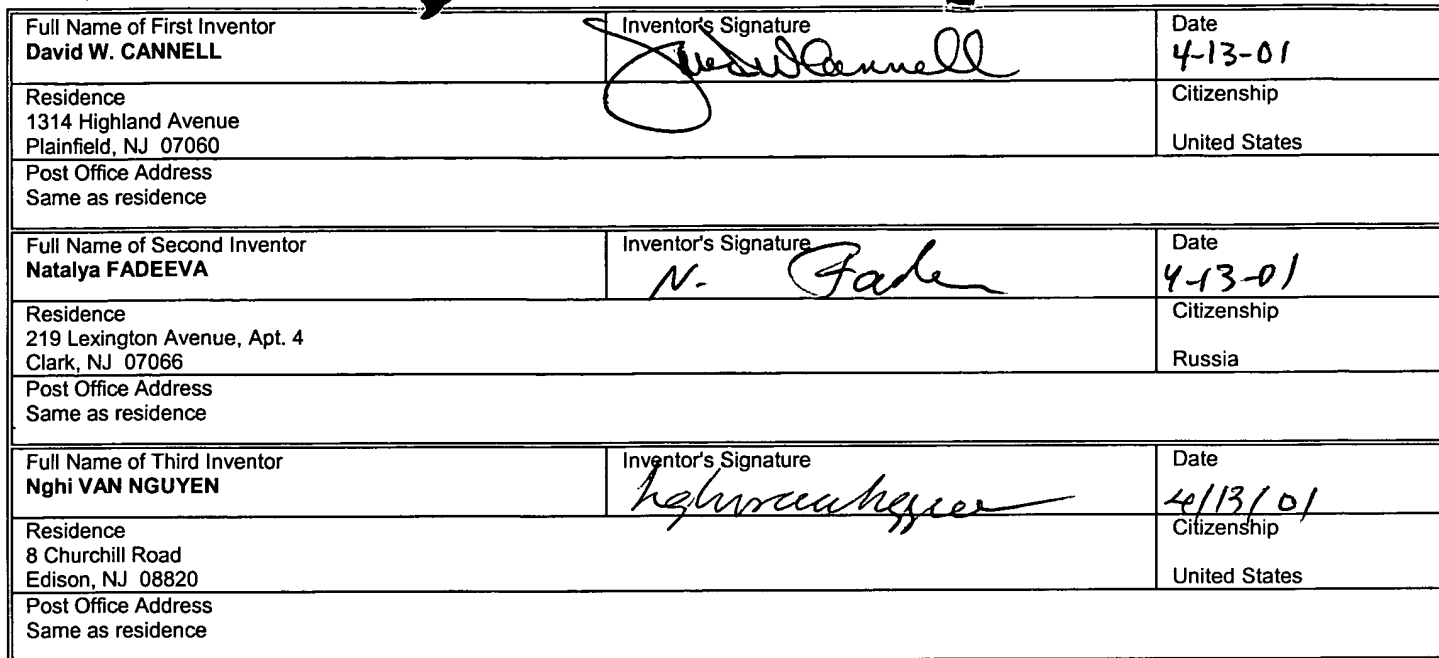 Full Name of First Inventor
David W. CANNELL
Inventor's Signature
David W Cannell
Date
4-13-01
Residence
1314 Highland Avenue
Plainfield, NJ 07060
Citizenship
United States
Post Office Address
Same as residence
Full Name of Second Inventor
Natalya FADEEVA
Inventor's Signature
N.
Date
4-13-01
Residence
219 Lexington Avenue, Apt. 4
Clark, NJ 07066
Citizenship
Russia
Post Office Address
Same as residence
Full Name of Third Inventor
Nghi VAN NGUYEN
Inventor's Signature
Date
4/13/01
Residence
8 Churchill Road
Edison, NJ 08820
Citizenship
United States
Post Office Address
Same as residence